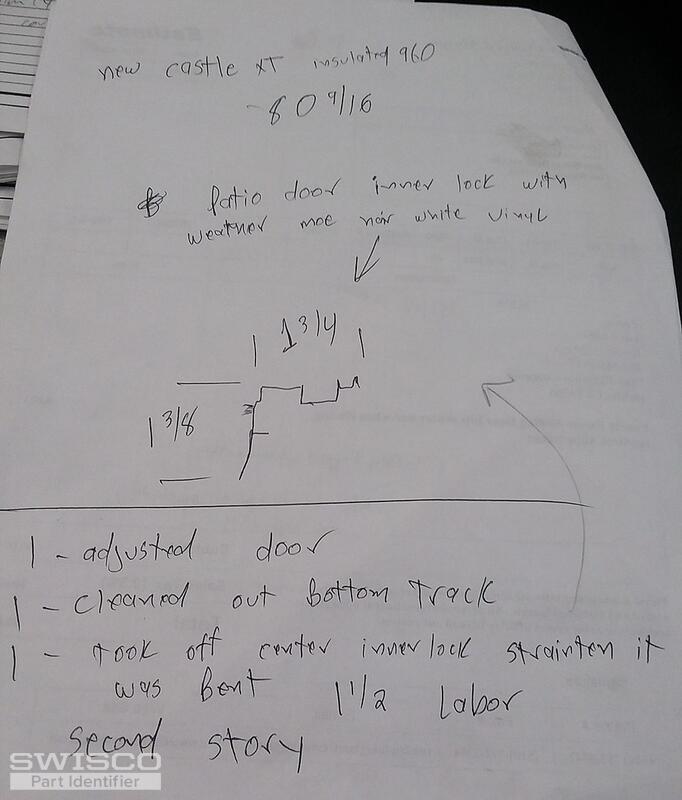 new castle XT insulated 960
80 9/16
Patio door inner lock with
weather moe hair white vinyl
1 3/4
1 3/8
1 - adjusted door
1 - cleaned out Bottom Track
1 - Took off center inner lock strainten it
was Bent 1 1/2 Labor
Second story
SWISCO
Part Identifier